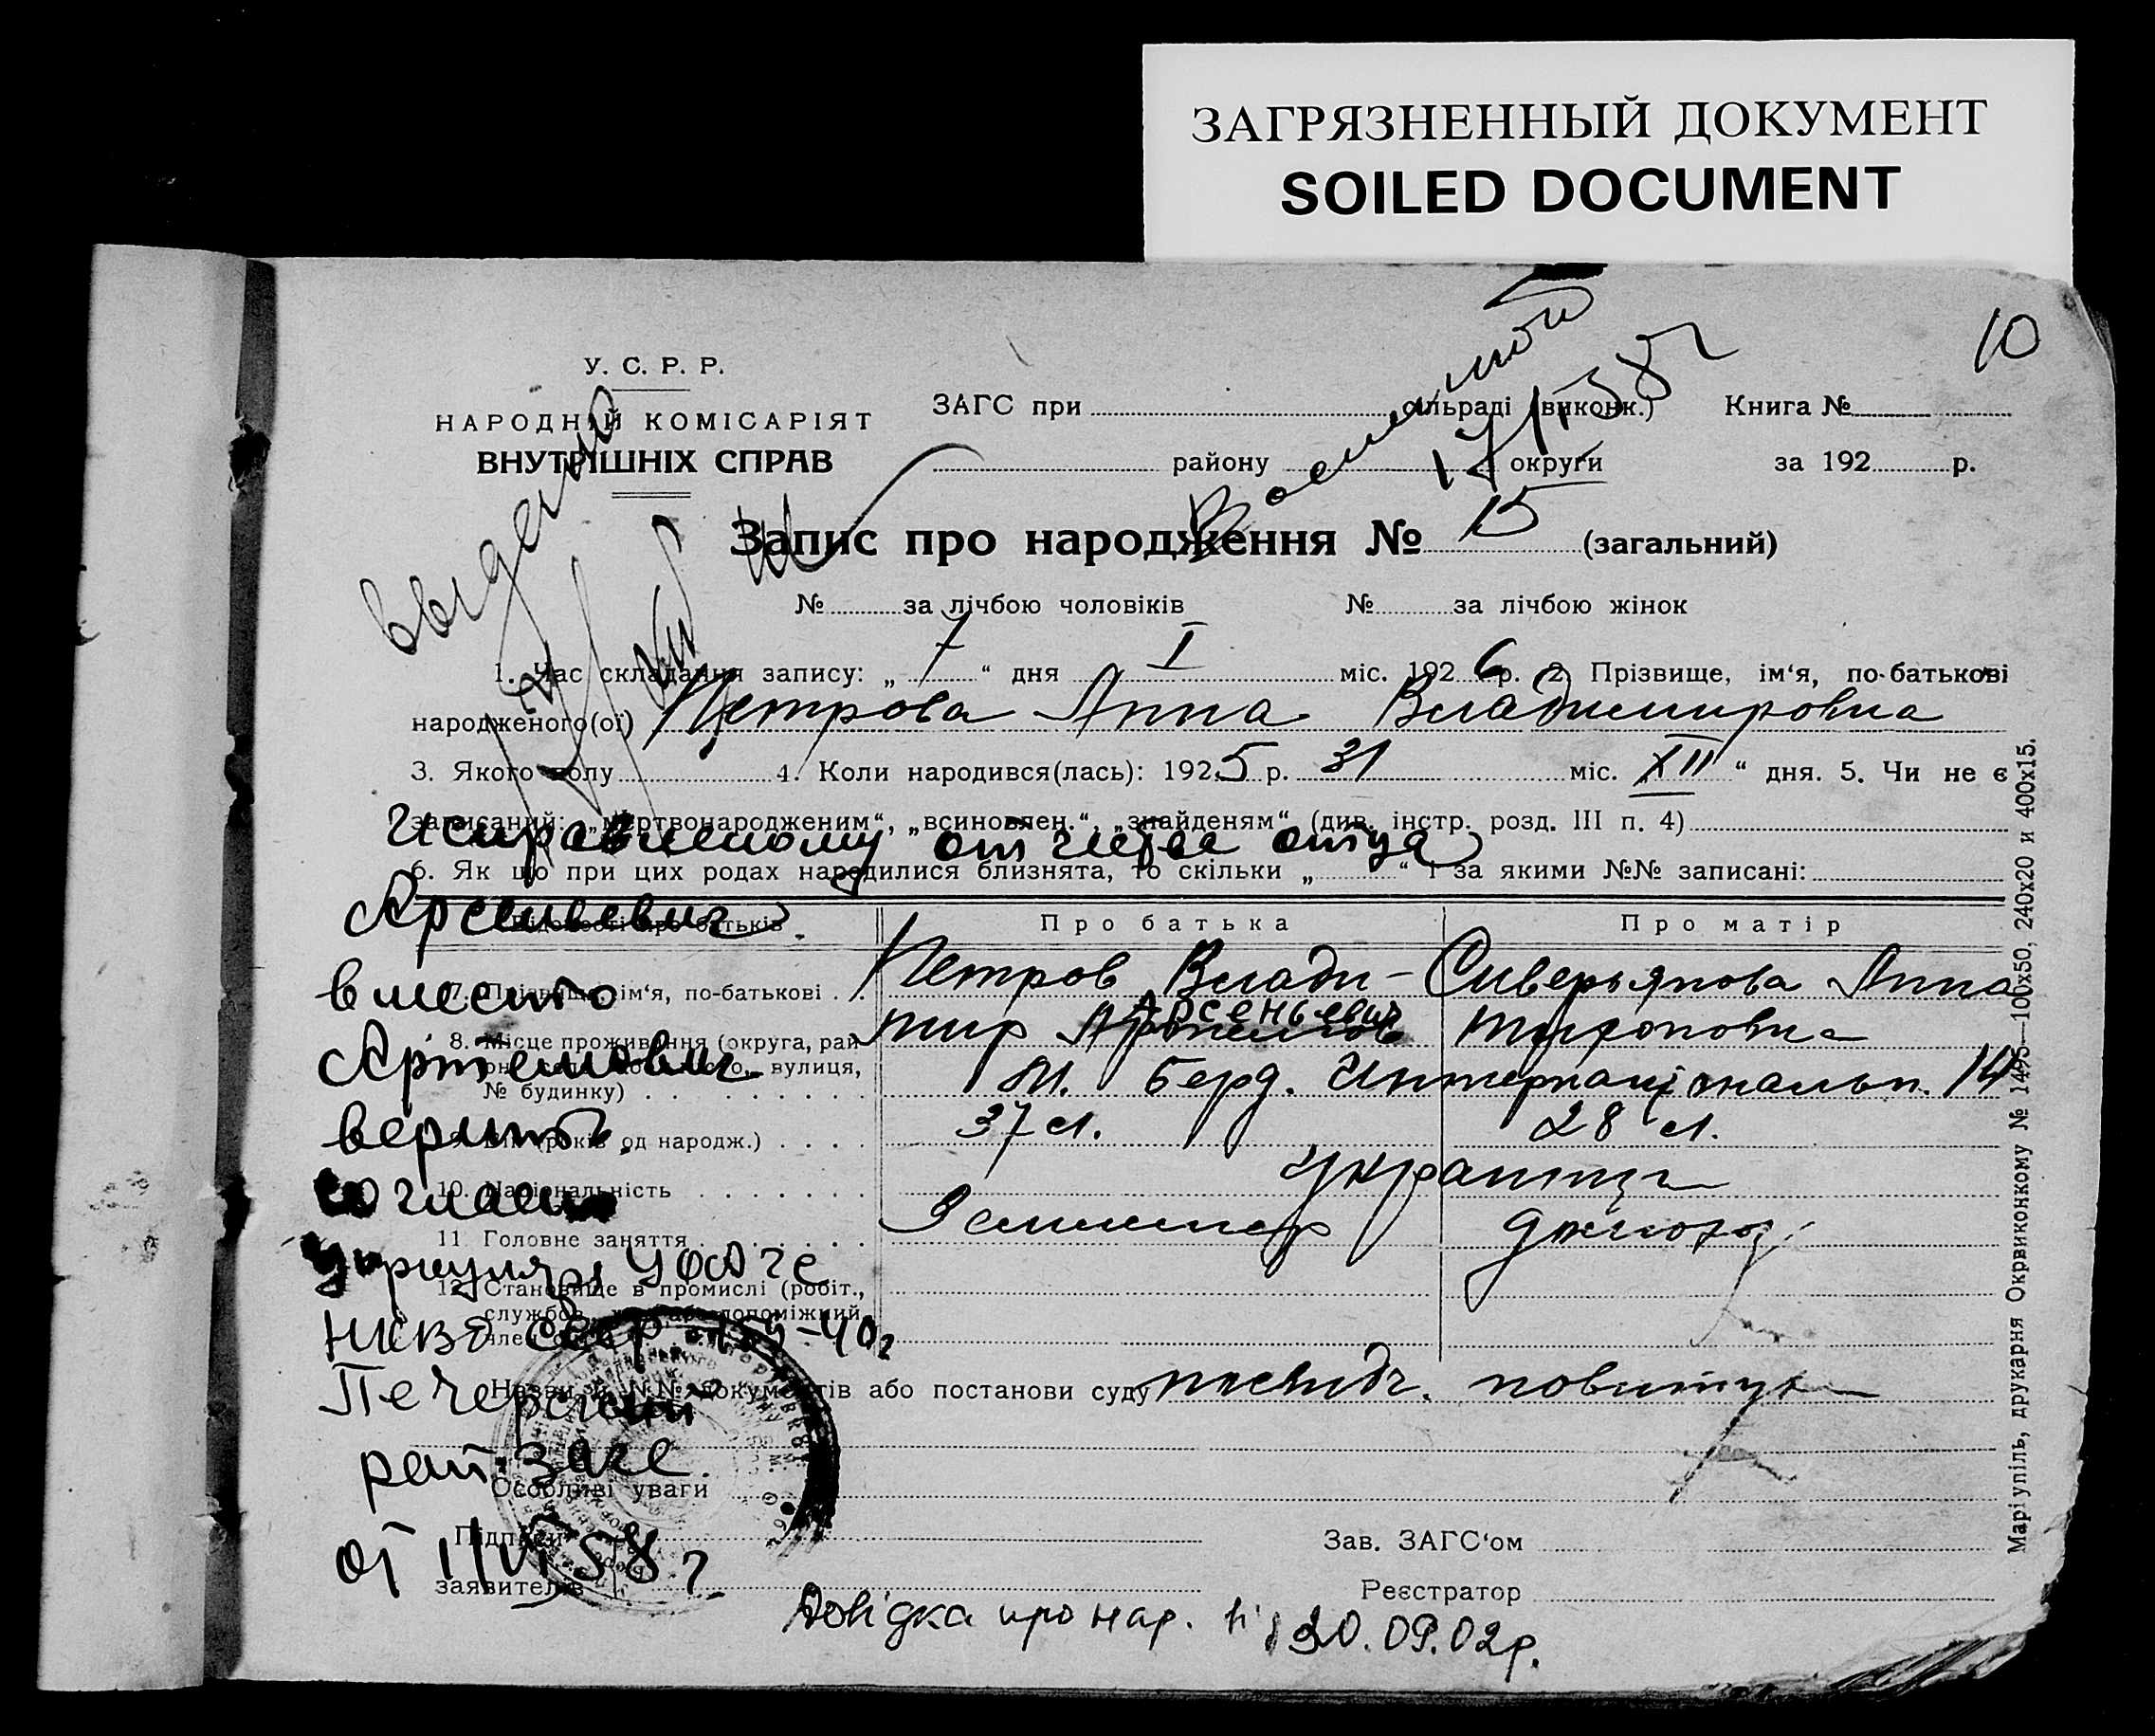 ЗАГРЯЗНЕННЫЙ ДОКУМЕНТ
SOILED DOCUMENT
10
У. С. Р. Р.
НАРОДНІЙ КОМІСАРІЯТ
ВНУТРІШНІХ СПРАВ
ЗАГС при сільраді (виконк.) Книга №
району округи за 192 р.
выдано
Запис про народження № 15 (загальний)
№ за лічбою чоловіків № за лічбою жінок
1. Час складання запису: „ 7 “ дня I міс. 192 6 р. 2. Прізвище, ім‘я, по-батькові
народженого(ої) Петрова Анна Владимировна
3. Якого полу 4. Коли народився(лась): 192 5 р. 31 міс. XII “ дня. 5. Чи не є
записаний: „мертвонародженим“, „всиновлен.“, „знайденям“ (див. інстр. розд. III п. 4)
Исправленому отчество отца
6. Як що при цих родах народилися близнята, то скільки „ “ і за якими №№ записані:
Арсеньевич
Відомості про батьків Про батька Про матір
вместо
7. Прізвище, ім‘я, по-батькові Петров Влади- Сиверьянова Анна
Арсеньевич
мир Мироновна
8. Місце проживання (округа, рай
он, село або місто, вулиця,
№ будинку) М. Берд. Интернаціональн. 14
Артемович
верить
9. Вік (років од народж.) 37 л. 28 л.
10. Національність Украинци
согласно
11. Головне заняття
циркуляра УОАГС
12. Становище в промислі (робіт.,
службов., допоміжний
член
НКВД СССР 40г
Назви й №№ документів або постанови суду посвидч. повитухи
Печерский
рай. загс.
Особливі уваги
Підписи
заявителів
от 1/VI 58 г
Зав. ЗАГС‘ом
Реєстратор
Довідка про нар. 20.09.02р.
Маріупіль, друкарня Окрвиконкому № 1495—100х50, 240х20 и 400х15.